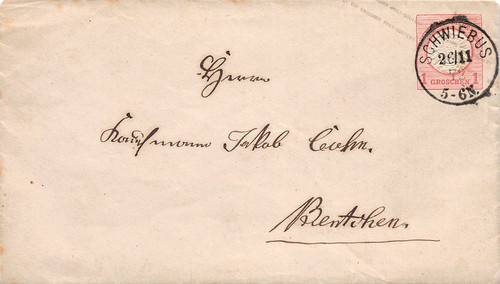 SCHWIEBUS
26 11
5-6N.
1 GROSCHEN 1
Herrn
Kaufmann Jakob Cohn.
Bentschen.